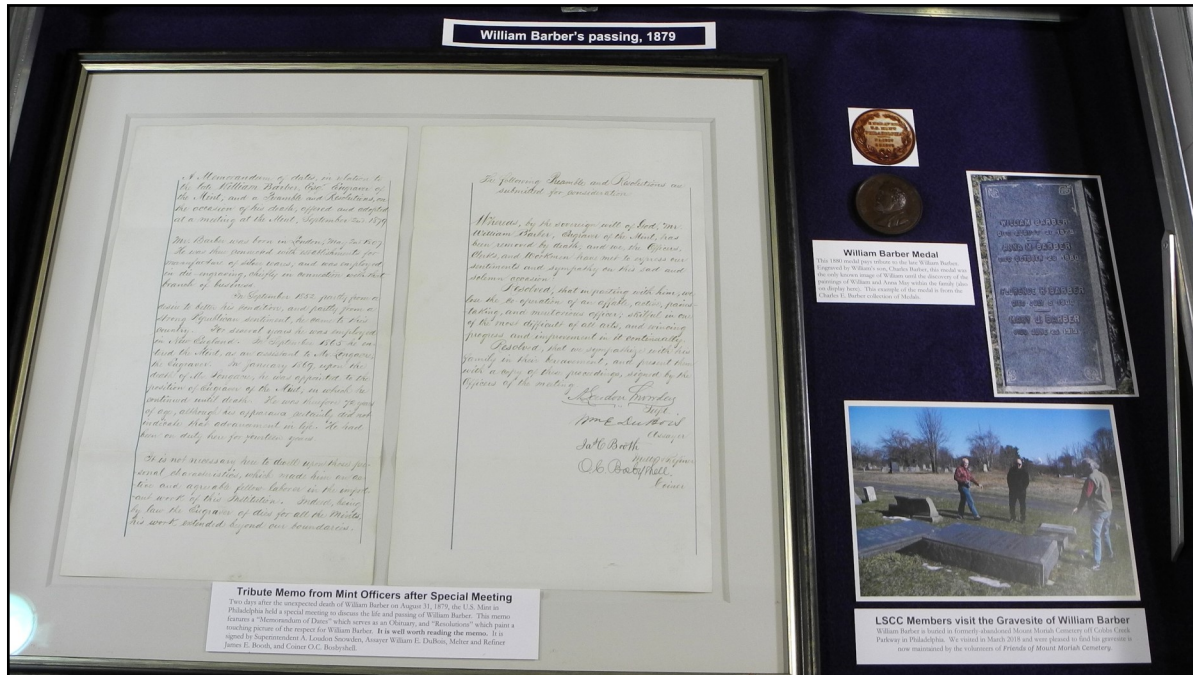 William Barber's passing, 1879
A Memorandum of dates, in relation to
the late William Barber, Esqr Engraver of
the Mint, and a Preamble and Resolutions, on
the occasion of his death, offered and adopted
at a meeting at the Mint, September 2nd 1879
Mr. Barber was born in London, May 2nd 1807.
He was then connected with establishments for
manufacture of silver ware, and was employed
in die engraving, chiefly in connection with that
branch of business.
In September 1852, partly from a
desire to better his condition, and partly from a
strong Republican sentiment, he came to this
country. For several years he was employed
in New England. In September 1865 he en-
tered the Mint, as an assistant to Mr. Longacre,
the Engraver. In January 1869, upon the
death of Mr. Longacre, he was appointed to the
position of Engraver of the Mint, in which he
continued until death. He was therefore 72 years
of age, although his appearance certainly did not
indicate that advancement in life. He had
been on duty here for fourteen years.
It is not necessary here to dwell upon those per-
sonal characteristics, which made him an ac-
tive and agreeable fellow laborer in the import-
ant work of this Institution. Indeed, being
by law the Engraver of dies for all the Mints,
his work extended beyond our boundaries.
The following Preamble and Resolutions are
submitted for consideration.
Whereas, by the sovereign will of God, Mr.
William Barber, Engraver of the Mint, has
been removed by death, and we, the Officers,
Clerks, and Workmen have met to express our
sentiments and sympathy on this sad and
solemn occasion.
Resolved, that in parting with him, we
lose the co-operation of an affable, active, pains-
taking, and meritorious officer; skilful in one
of the most difficult of all arts, and winning
progress and improvement in it continually.
Resolved, that we sympathize with his
family in their bereavement, and present them
with a copy of this proceedings, signed by the
Officers of the meeting.
A. Loudon Snowden
Supt.
Wm E. DuBois
Assayer
Jas C Booth
Melter & Refiner
O.C. Bosbyshell
Coiner
Tribute Memo from Mint Officers after Special Meeting
Two days after the unexpected death of William Barber on August 31, 1879, the U.S. Mint in
Philadelphia held a special meeting to discuss the life and passing of William Barber. This memo
features a "Memorandum of Dates" which serves as an Obituary, and "Resolutions" which paint a
touching picture of the respect for William Barber. It is well worth reading the memo. It is
signed by Superintendent A. Loudon Snowden, Assayer William E. DuBois, Melter and Refiner
James E. Booth, and Coiner O.C. Bosbyshell.
ENGRAVER
U.S. MINT
PHILADELPHIA
William Barber Medal
This 1880 medal pays tribute to the late William Barber.
Engraved by William's son, Charles Barber, this medal was
the only known image of William until the discovery of the
paintings of William and Anna May within the family (also
on display here). This example of the medal is from the
Charles E. Barber collection of Medals.
WILLIAM BARBER
ANNA M. BARBER
BARBER
MARY W. BARBER
LSCC Members visit the Gravesite of William Barber
William Barber is buried in formerly abandoned Mount Moriah Cemetery off Cobbs Creek
Parkway in Philadelphia. We visited in March 2018 and were pleased to find his gravesite is
now maintained by the volunteers of Friends of Mount Moriah Cemetery.